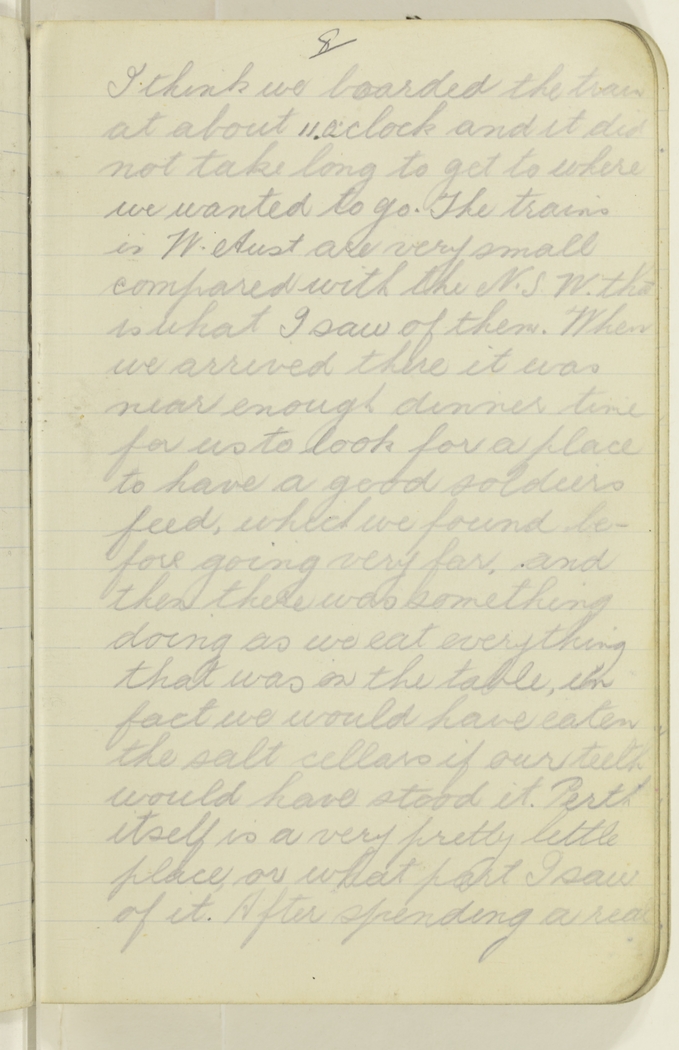 8
I think we boarded the train
at about 11. o'clock and it did
not take long to get to where
we wanted to go. The trains
in W. Aust are very small
compared with the N.S.W. that
is what I saw of them. When
we arrived there it was
near enough dinner time
for us to look for a place
to have a good soldiers
feed, which we found be-
fore going very far, and
then there was something
doing as we eat everything
that was on the table, in
fact we would have eaten
the salt cellars if our teeth
would have stood it. Perth
itself is a very pretty little
place, or what part I saw
of it. After spending a real